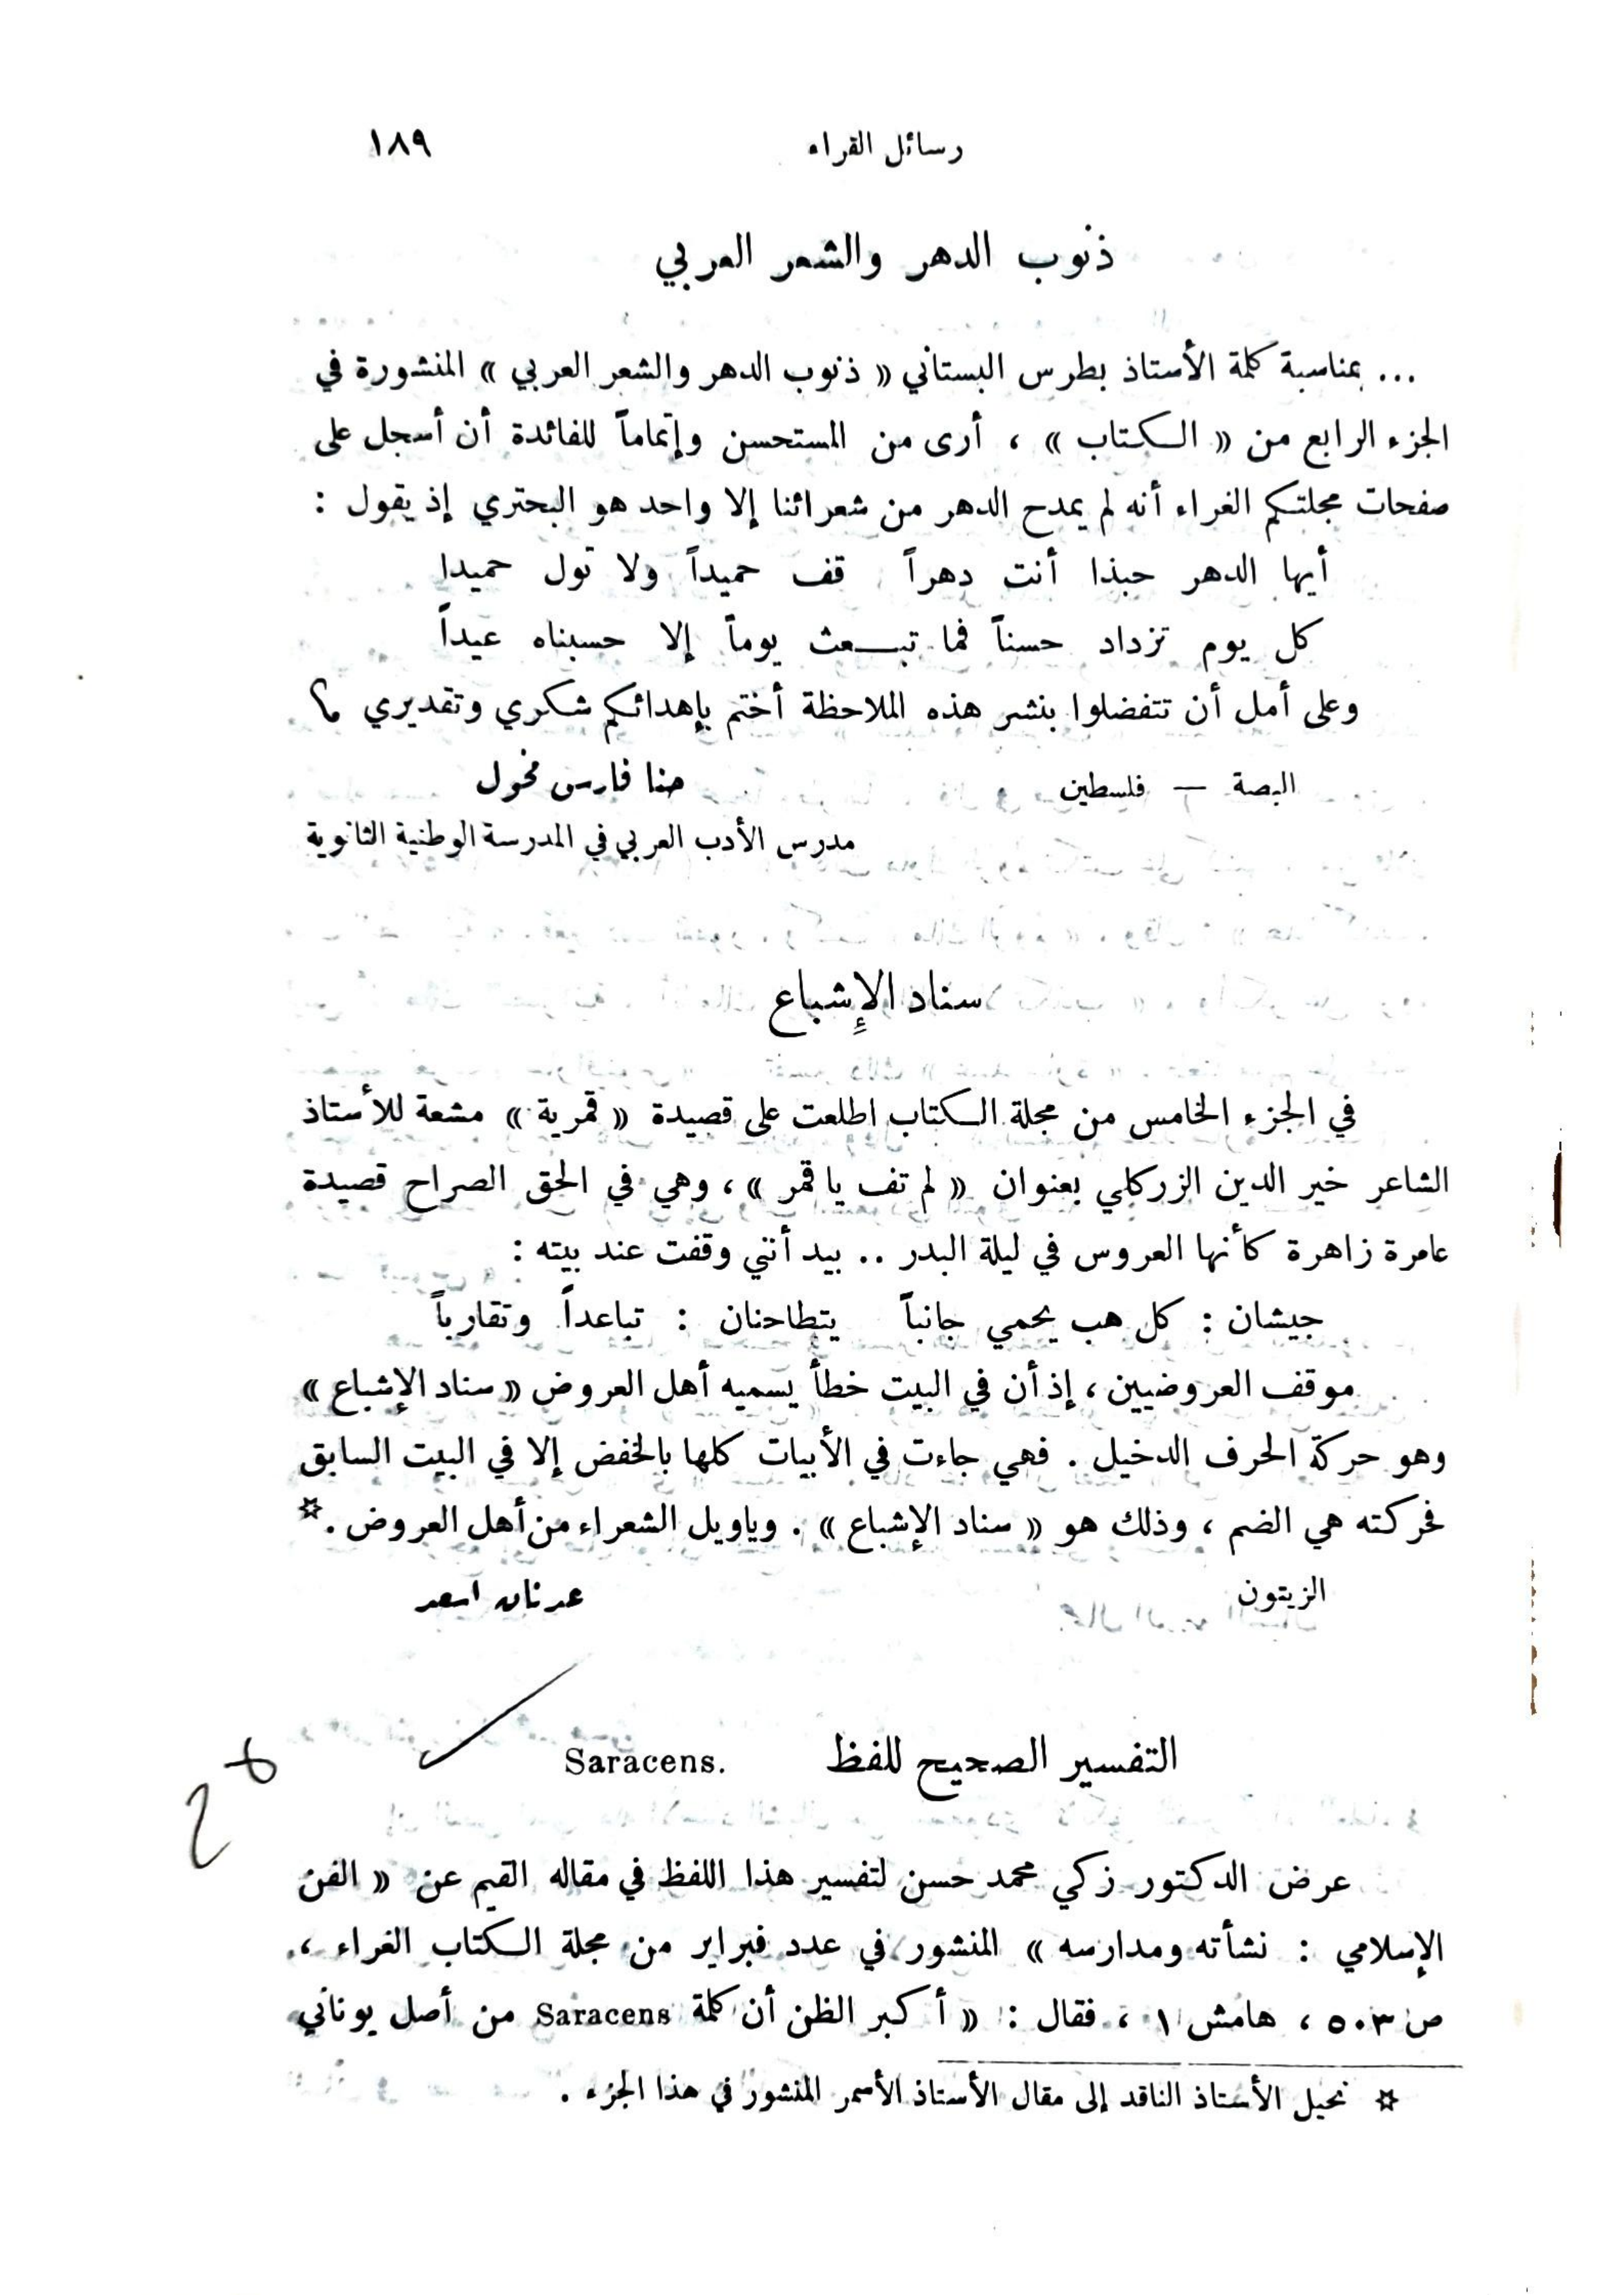 رسائل القراء ١٨٩
ذنوب الدهر والشعر العربي
... بمناسبة كلمة الأستاذ بطرس البستاني « ذنوب الدهر والشعر العربي » المنشورة في
الجزء الرابع من « الكتاب » ، أرى من المستحسن وإتماماً للفائدة أن أسجل على
صفحات مجلتكم الغراء أنه لم يمدح الدهر من شعرائنا إلا واحد هو البحتري إذ يقول :
أيها الدهر حبذا أنت دهراً قف حميداً ولا تول حميدا
كل يوم تزداد حسناً فما تبعث يوماً إلا حسبناه عيداً
وعلى أمل أن تتفضلوا بنشر هذه الملاحظة أختم بإهدائكم شكري وتقديري
البصة — فلسطين حنا فارس مخول
مدرس الأدب العربي في المدرسة الوطنية الثانوية
سناد الإشباع
في الجزء الخامس من مجلة الكتاب اطلعت على قصيدة « قمرية » مشعة للأستاذ
الشاعر خير الدين الزركلي بعنوان « لم تف يا قمر » ، وهي في الحق الصراح قصيدة
عامرة زاهرة كأنها العروس في ليلة البدر .. بيد أنني وقفت عند بيته :
جيشان : كل هب يحمي جانباً يتطاحنان : تباعداً وتقارباً
موقف العروضيين ، إذ أن في البيت خطأ يسميه أهل العروض « سناد الإشباع »
وهو حركة الحرف الدخيل . فهي جاءت في الأبيات كلها بالخفض إلا في البيت السابق
فحركته هي الضم ، وذلك هو « سناد الإشباع » . وياويل الشعراء من أهل العروض .☆
الزيتون عدنان اسعد
التفسير الصحيح للفظ Saracens.
عرض الدكتور زكي محمد حسن لتفسير هذا اللفظ في مقاله القيم عن « الفن
الإسلامي : نشأته ومدارسه » المنشور في عدد فبراير من مجلة الكتاب الغراء ،
ص ٥٠٣ ، هامش ١ ، فقال : « أكبر الظن أن كلمة Saracens من أصل يوناني
☆ نحيل الأستاذ الناقد إلى مقال الأستاذ الأسمر المنشور في هذا الجزء .